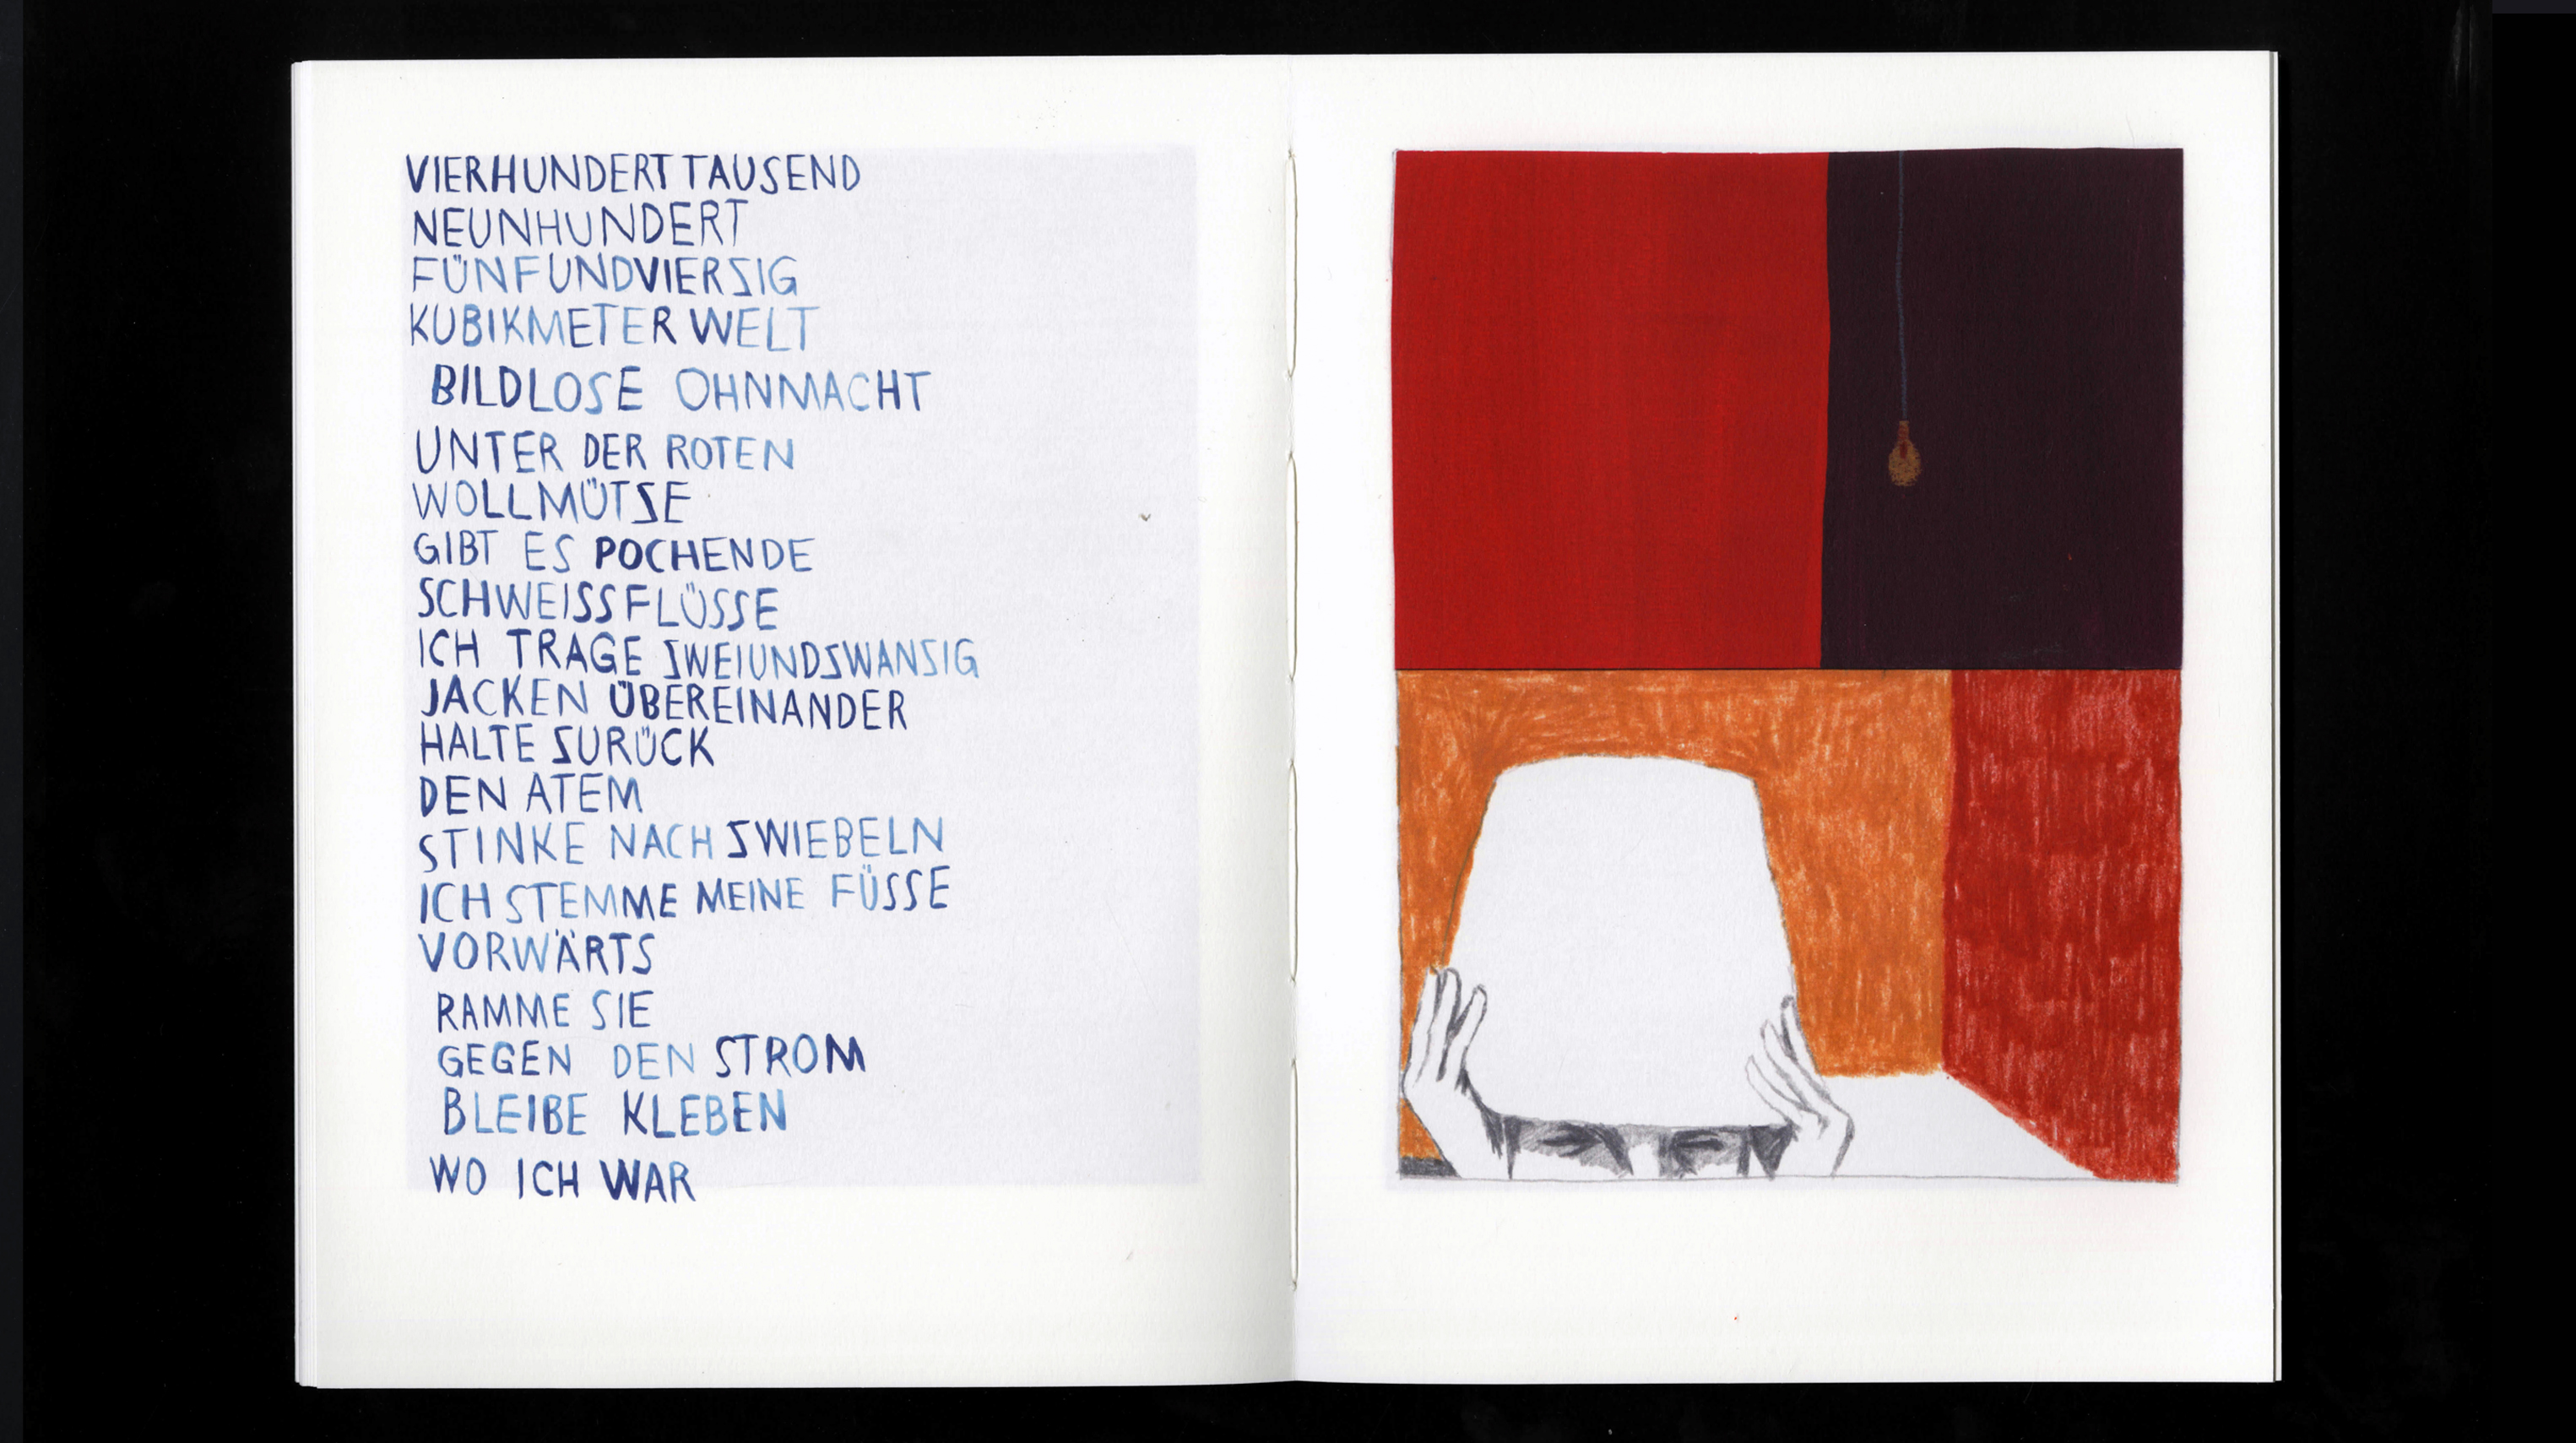 VIERHUNDERT TAUSEND
NEUNHUNDERT
FÜNFUNDVIERZIG
KUBIKMETER WELT
BILDLOSE OHNMACHT
UNTER DER ROTEN
WOLLMÜTZE
GIBT ES POCHENDE
SCHWEISSFLÜSSE
ICH TRAGE ZWEIUNDZWANZIG
JACKEN ÜBEREINANDER
HALTE ZURÜCK
DEN ATEM
STINKE NACH ZWIEBELN
ICH STEMME MEINE FÜSSE
VORWÄRTS
RAMME SIE
GEGEN DEN STROM
BLEIBE KLEBEN
WO ICH WAR